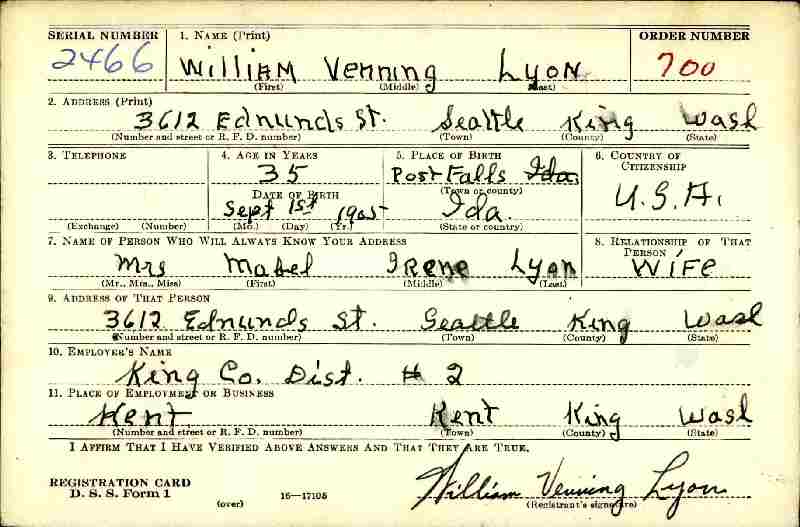 SERIAL NUMBER 1. NAME (Print) ORDER NUMBER
2466 William Venning Lyon 700
(First) (Middle) (Last)
2. ADDRESS (Print)
3612 Edmunds St. Seattle King Wash
(Number and street or R. F. D. number) (Town) (County) (State)
3. TELEPHONE 4. AGE IN YEARS 5. PLACE OF BIRTH 6. COUNTRY OF CITIZENSHIP
35 Post Falls Ida. U.S.A.
DATE OF BIRTH (Town or county)
Sept 1st 1905 Ida.
(Exchange) (Number) (Mo.) (Day) (Yr.) (State or country)
7. NAME OF PERSON WHO WILL ALWAYS KNOW YOUR ADDRESS 8. RELATIONSHIP OF THAT PERSON
Mrs Mabel Irene Lyon Wife
(Mr., Mrs., Miss) (First) (Middle) (Last)
9. ADDRESS OF THAT PERSON
3612 Edmunds St. Seattle King Wash
(Number and street or R. F. D. number) (Town) (County) (State)
10. EMPLOYER'S NAME
King Co. Dist. # 2
11. PLACE OF EMPLOYMENT OR BUSINESS
Kent Kent King Wash
(Number and street or R. F. D. number) (Town) (County) (State)
I AFFIRM THAT I HAVE VERIFIED ABOVE ANSWERS AND THAT THEY ARE TRUE.
REGISTRATION CARD
D. S. S. Form 1 (over) 16—17105 William Venning Lyon
(Registrant's signature)